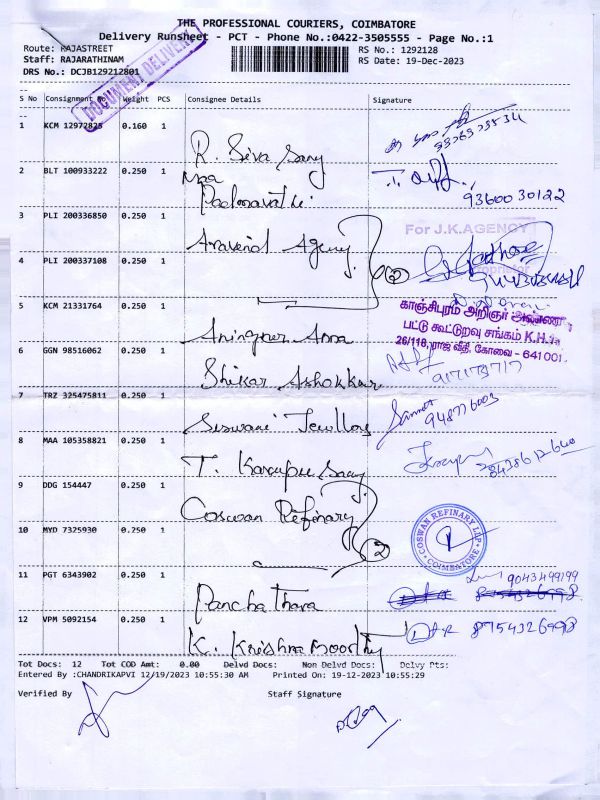 THE PROFESSIONAL COURIERS, COIMBATORE
Delivery Runsheet - PCT - Phone No.:0422-3505555 - Page No.:1
Route: RAJASTREET
RS No.: 1292128
Staff: RAJARATHINAM
RS Date: 19-Dec-2023
DRS No.: DCJB129212801
DOCUMENT DELIVERY
S No Consignment No Weight PCS Consignee Details Signature
1 KCM 12972825 0.160 1 R. Siva Samy
2 BLT 100933222 0.250 1 Padmavathi 9360030122
3 PLI 200336850 0.250 1 Aravind Agency For J.K.AGENCY
4 PLI 200337108 0.250 1 2 Proprietor
5 KCM 21331764 0.250 1 Anna காஞ்சிபுரம் அறிஞர் அண்ணா
பட்டு கூட்டுறவு சங்கம் K.H.
26/118, ராஜ வீதி, கோவை - 641001.
6 GGN 98516062 0.250 1 Shikar Ashokkar
7 TRZ 325475811 0.250 1
8 MAA 105358821 0.250 1 T. Samy
9 DDG 154447 0.250 1 Coswan Refinary
COSWAN REFINARY LLP
COIMBATORE
10 MYD 7325930 0.250 1 2
11 PGT 6343902 0.250 1 Pancha Thara 9043499199
12 VPM 5092154 0.250 1 K. Krishna Moorthy 8754326998
Tot Docs: 12 Tot COD Amt: 0.00 Delvd Docs: Non Delvd Docs: Delvy Pts:
Entered By :CHANDRIKAPVI 12/19/2023 10:55:30 AM Printed On: 19-12-2023 10:55:29
Verified By Staff Signature